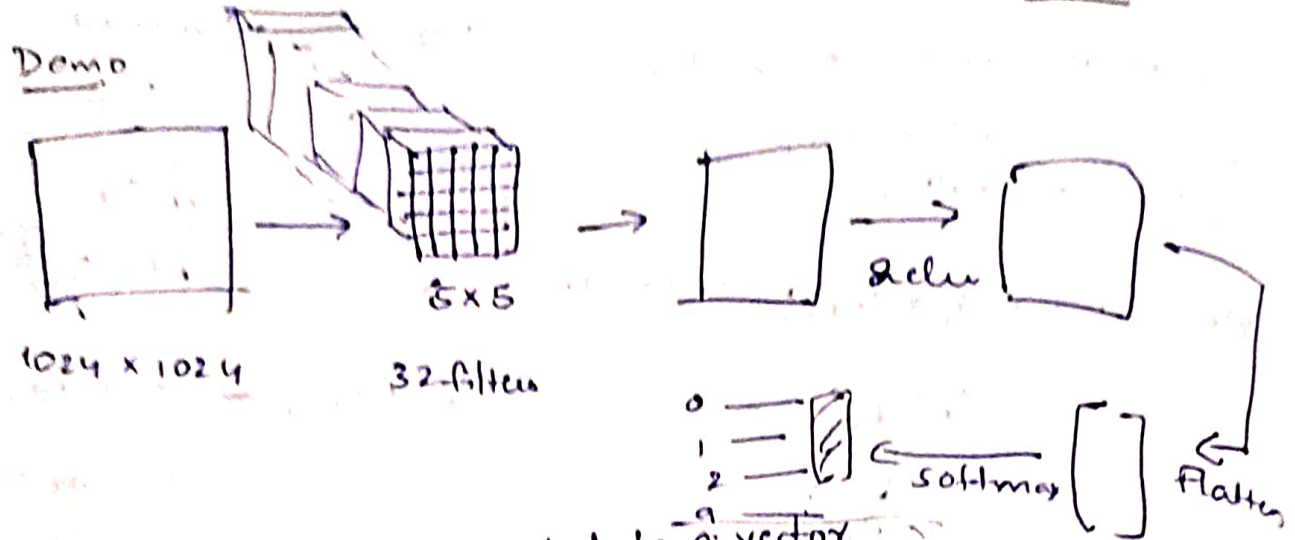 Demo
5 x 5
1024 x 1024
32-filters
Relu
Flatten
Softmax
0
1
2
9
a vector